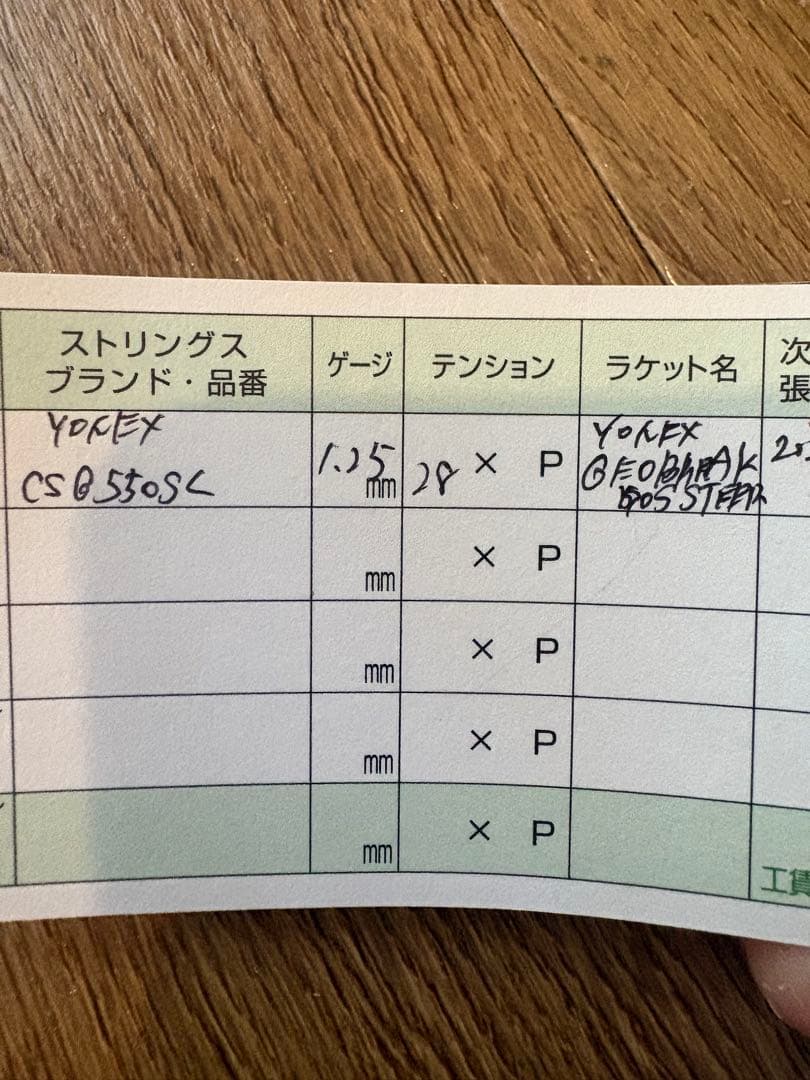 ストリングス
ブランド・品番
ゲージ
テンション
ラケット名
次
張
YONEX
CSG550SL
1.25
mm
28 × P
YONEX
GEOBREAK
STEER
20
mm
× P
mm
× P
mm
× P
mm
× P
工賃